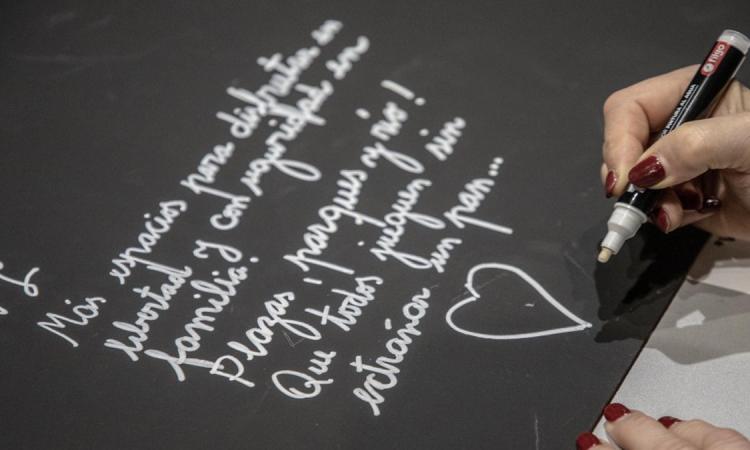 Más espacios para disfrutar en
libertad y con seguridad en
familia.
Plazas, parques y río!
Que todos jueguen sin
extrañar un pan...
filgo